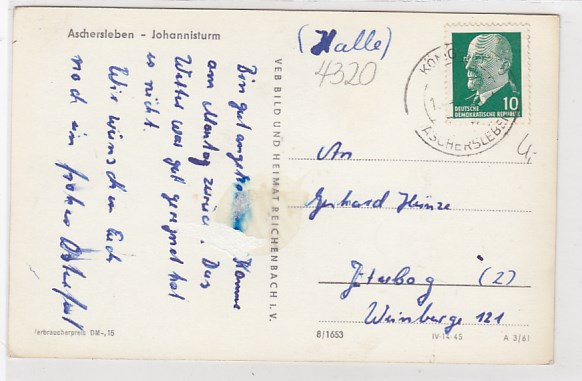 Aschersleben - Johannisturm
(Halle)
4320
Bin gut angekommen. Komme
am Montag zurück. Das
Wetter war gut geregnet hat
es nicht.
Wir wünschen Euch
noch ein frohes Osterfest
VEB BILD UND HEIMAT REICHENBACH I. V.
DEUTSCHE
DEMOKRATISCHE REPUBLIK
10
ASCHERSLEBEN
An
Gerhard Heinze
Jüterbog (2)
Weinberge 121
Verbraucherpreis DM-,15
8/1653
IV-14-45
A 3/61